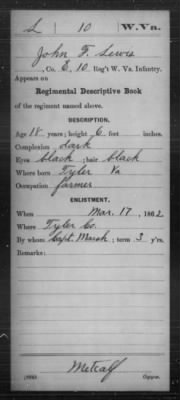 L 10 W.Va.
John F. Lewis
, Co. C, 10 Reg't W. Va. Infantry.
Appears on
Regimental Descriptive Book
of the regiment named above.
DESCRIPTION.
Age 18 years; height 6 feet inches.
Complexion dark
Eyes black; hair black
Where born Tyler Va
Occupation farmer
ENLISTMENT.
When Mar. 17, 1862
Where Tyler Co.
By whom Capt. Marsh; term 3 y'rs.
Remarks:
Metcalf
Copyist.